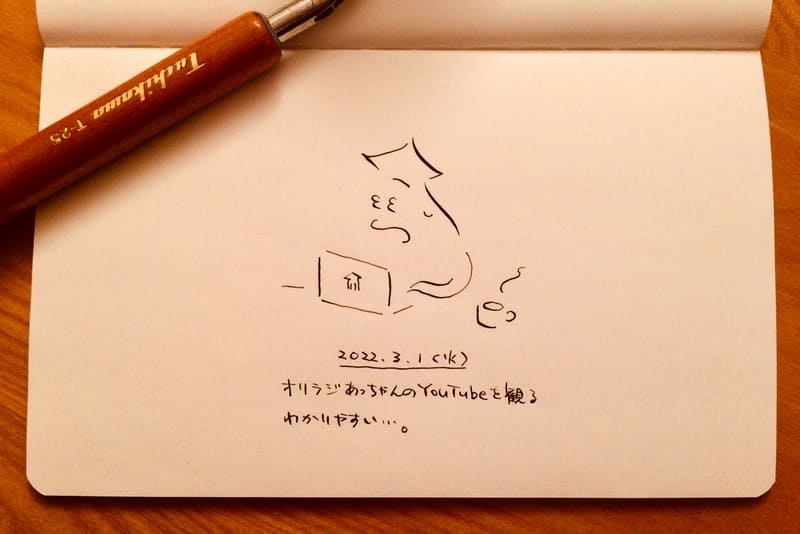 Tachikawa T-25
2022.3.1(火)
オリラジあっちゃんのYouTubeを観る
わかりやすい…。